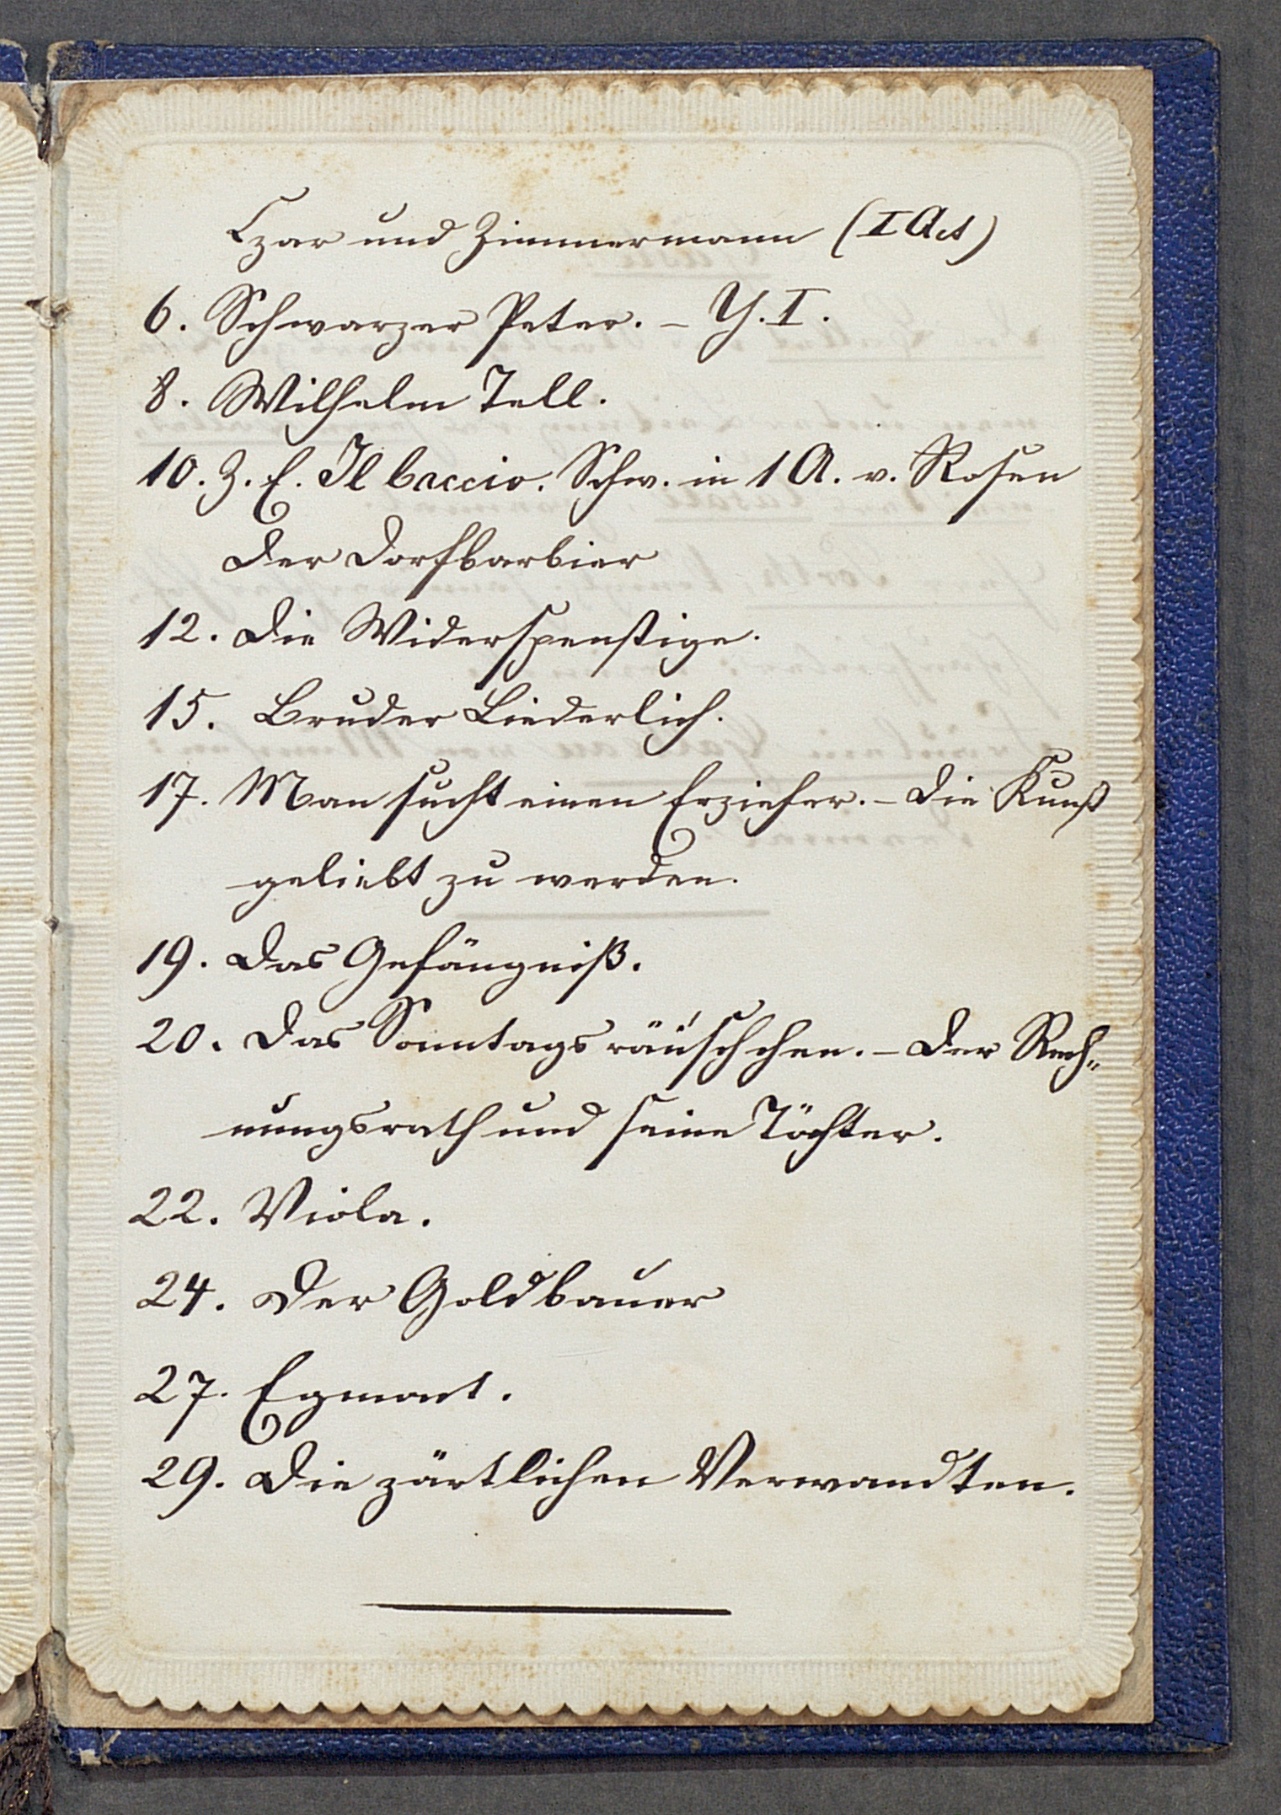 Czar und Zimmermann (I Act)
6. Schwarzer Peter. – Y. I.
8. Wilhelm Tell.
10. Z. E. Il baccio. Schw. in 1 A. v. Rosen
Der Dorfbarbier
12. Die Widerspenstige.
15. Bruder Liederlich.
17. Man sucht einen Erzieher. – Die Kunst
geliebt zu werden.
19. Das Gefängniß.
20. Das Sonntagsräuschchen. – Der Rech⸗
nungsrath und seine Töchter.
22. Viola.
24. Der Goldbauer
27. Egmont.
29. Die zärtlichen Verwandten.